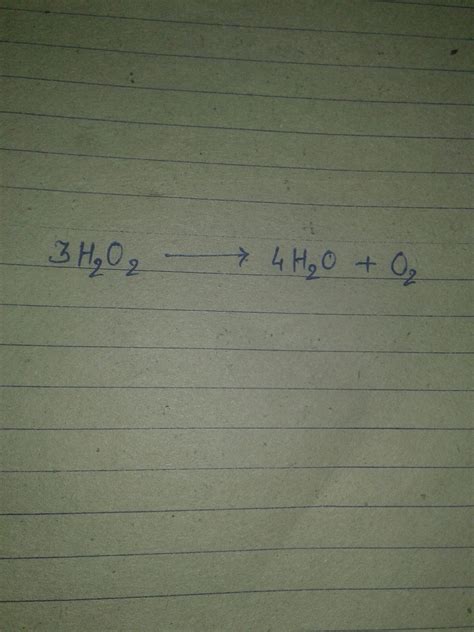 3H₂O₂ → 4H₂O + O₂